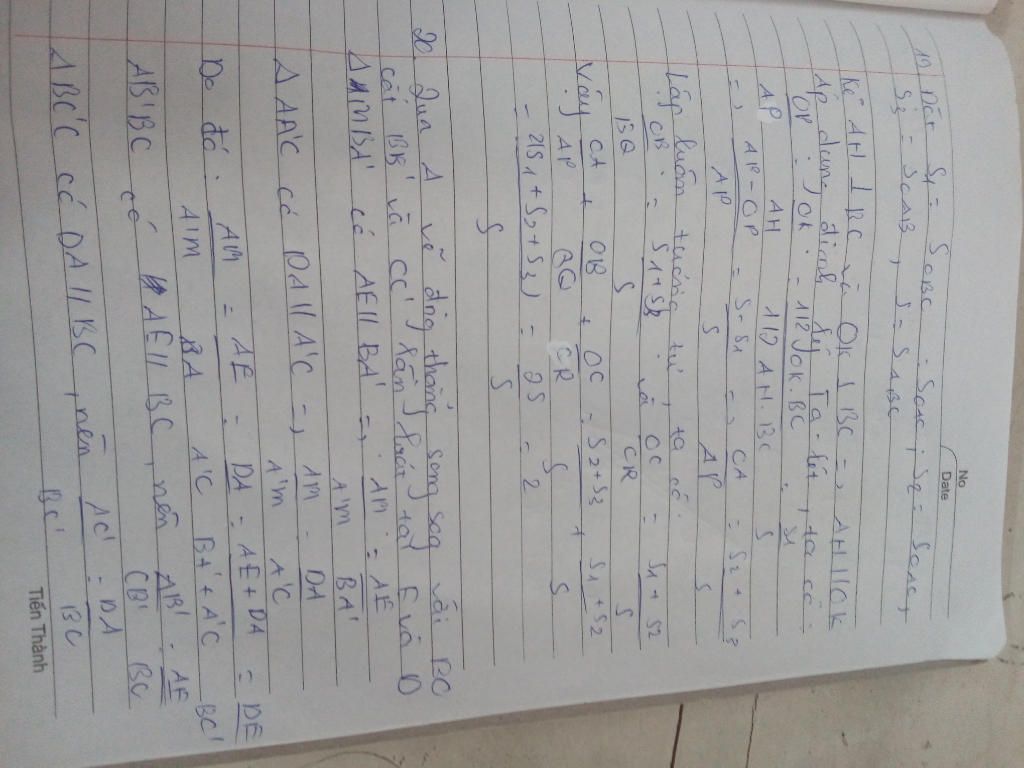 No
Date
19) Đặt S1 = SOBC = SOHC; S2 = SOAC,
S3 = SOAB, S = SABC
Kẻ AH ⊥ BC và OK ⊥ BC => AH // OK
Áp dụng định lý Ta-lét, ta có:
OP/AP = OK/AH = 1/2 OK.BC / 1/2 AH.BC = S1/S
=> AP-OP/AP = S-S1/S => OA/AP = S2+S3/S
Lập luận tương tự, ta có:
OB/BQ = S1+S3/S và OC/CR = S1+S2/S
Vậy OA/AP + OB/BQ + OC/CR = S2+S3/S + S1+S2/S
= 2(S1+S2+S3)/S = 2S/S = 2
20. Qua A vẽ đg thẳng song sog với BC
cắt BB' và CC' lần lượt tại E và D
Δ MBA' có AE // BA' => AM/A'M = AE/BA'
Δ AA'C có DA // A'C => AM/A'M = DA/A'C
Do đó: AM/A'M = AE/BA = DA/A'C = AE+DA/BA'+A'C = DE/BC'
AB'BC có AE // BC, nên AB'/CB' = AE/BC
Δ BC'C có DA // BC, nên AC'/BC' = DA/BC
Tiến Thành